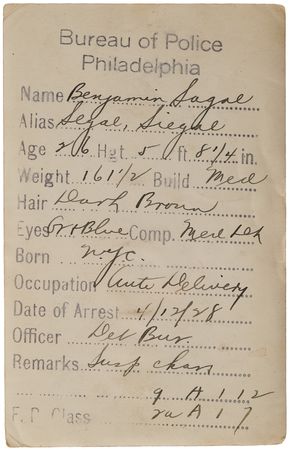 Bureau of Police
Philadelphia
Name Benjamin Sagal
Alias Segal, Siegal
Age 26 Hgt. 5 ft 8 1/4 in.
Weight 161 1/2 Build Med
Hair Dark Brown
Eyes Gr+Blue Comp. Med Dk
Born N.Y.C.
Occupation Auto Delivery
Date of Arrest 4/12/28
Officer Det Bur.
Remarks Susp char
9 A 1 12
F. P. Class A 1 7